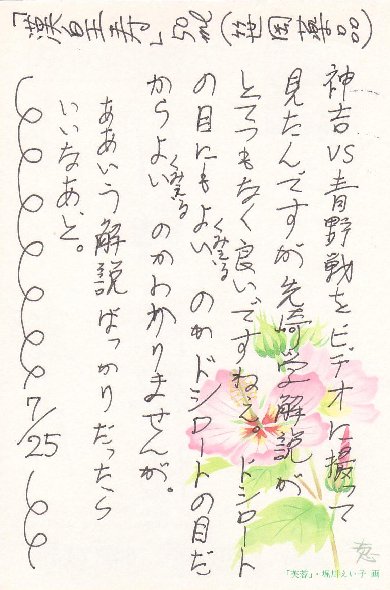 「漢皇寿」50ml(笹岡薬品)
神吉VS青野戦をビデオに撮って
見たんですが先崎学解説が
とてつもなく良いですねえ。ドシロート
の目にもよい(くみえる)のかドシロートの目だ
からよい(くみえる)のかわかりませんが。
ああいう解説ばっかりだったら
いいなあ、と。
7/25
「芙蓉」・堀川えい子 画